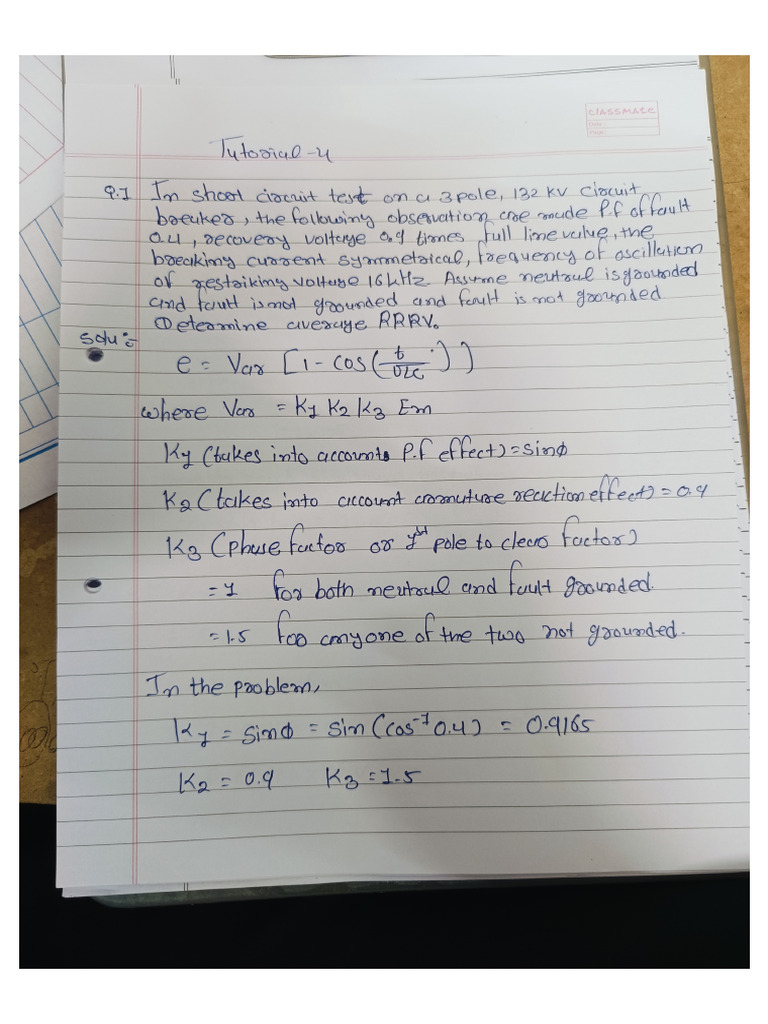 CLASSMATE
Date :
Page :
Tutorial-4
Q.1 In short circuit test on a 3pole, 132 kv circuit
breaker, the following observation are made P.f of fault
0.4, recovery voltage 0.9 times full line value, the
breaking current symmetrical, frequency of oscillation
of restriking voltage 16kHz Assume neutral is grounded
and fault is not grounded and fault is not grounded
Determine average RRRV.
Solu :-
e = Var [1 - cos(t/√LC))
where Var = K1 K2 K3 Em
K1 (takes into accounts P.f effect) = sinφ
K2 (takes into account armuture reaction effect) = 0.9
K3 (phase factor or 1st pole to clear factor)
= 1 for both neutral and fault grounded.
= 1.5 for anyone of the two not grounded.
In the problem,
K1 = sinφ = sin (cos⁻¹ 0.4) = 0.9165
K2 = 0.9 K3 = 1.5